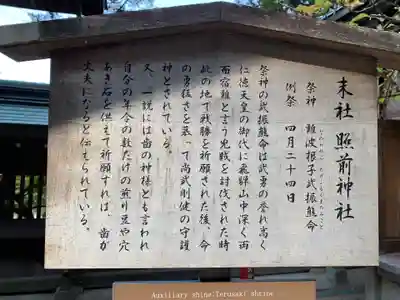 末社 照前神社
祭神 難波根子武振熊命
例祭 四月二十四日
祭神の武振熊命は武勇の誉れ高く
仁徳天皇の御代に飛騨山中深く両
面宿儺と言う兇賊を討伐された時
此の地で戦勝を祈願された後、命
の勇猛さを慕って尚武剛健の守護
神とされている。
又、一説には歯の神様とも言われ
自分の年令の数だけの煎り豆や穴
あき石を供えて祈願すれば、歯が
丈夫になると伝えられている。
Auxiliary shine:Terusaki shrine